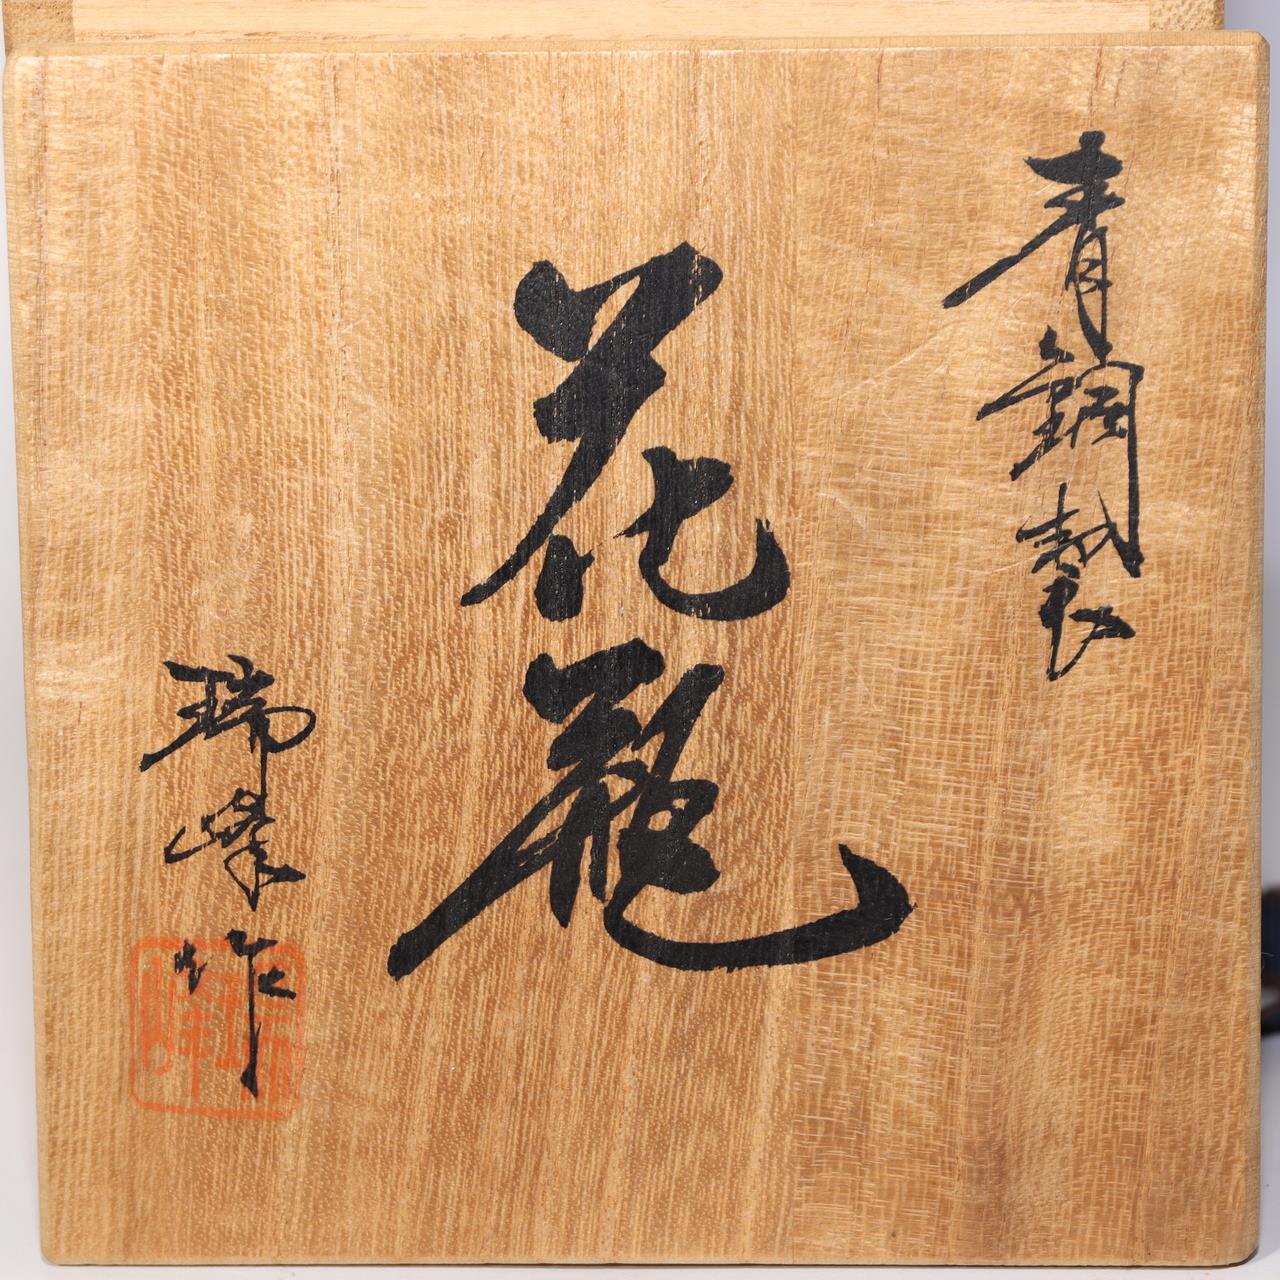 青銅製
花瓶
瑞峯作
瑞峰